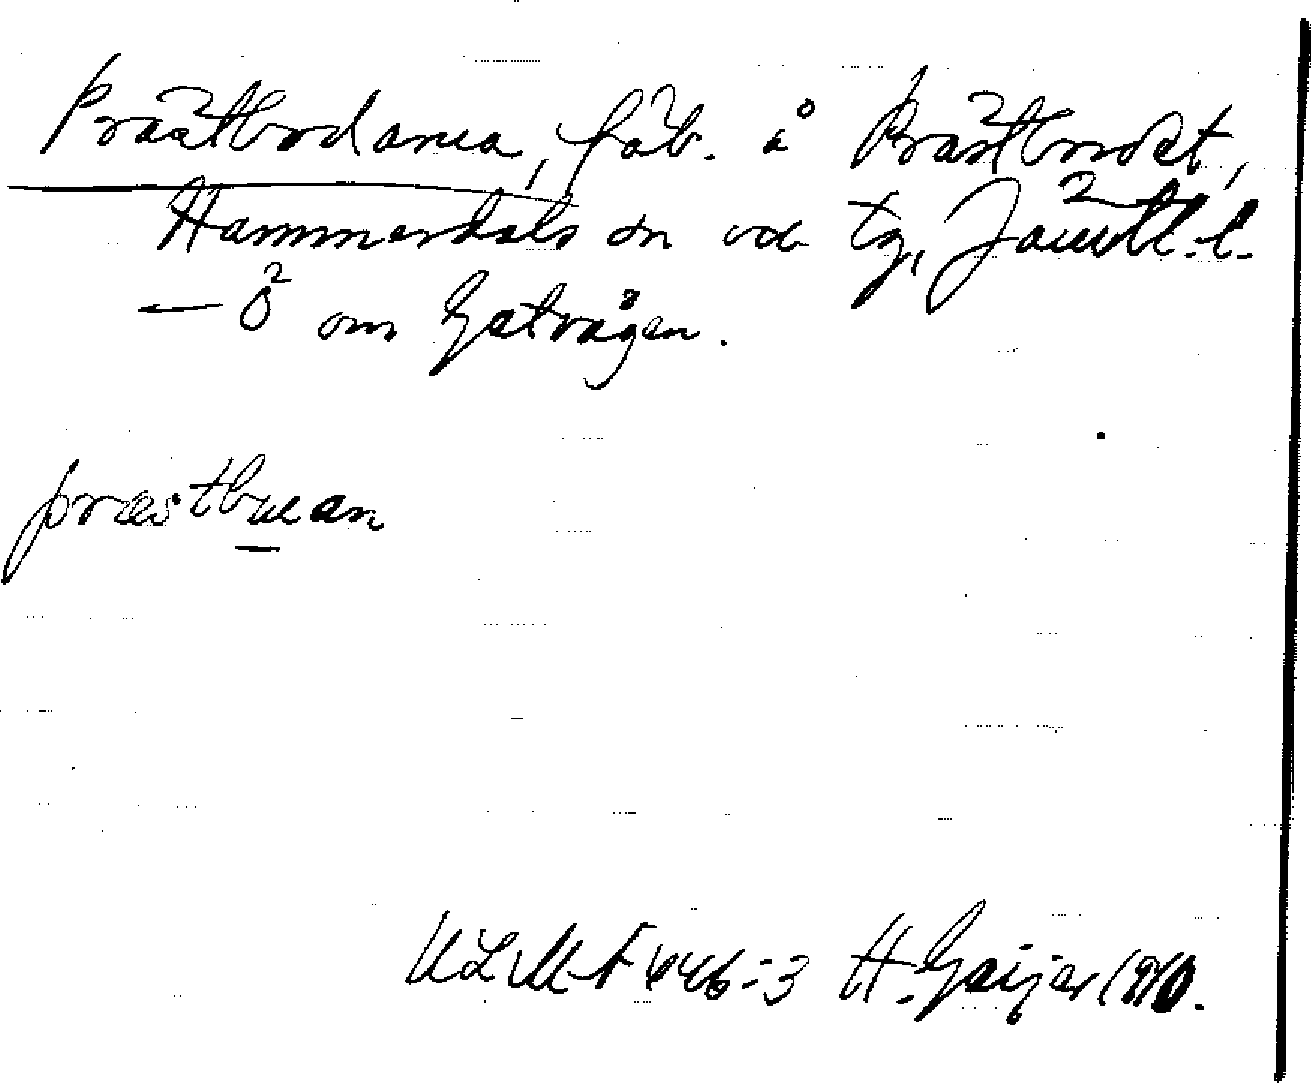 Prästbodarna, fäb. å Prästbordet,
Hammerdals sn och tg, Jämtl. l.
— Ö om Gåxvägen.
præstbuan
ULMA 446:3 H. Geijer 1910.